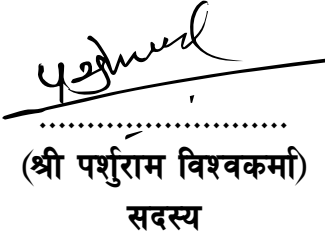 ........................
(श्री पर्शुराम विश्वकर्मा)
सदस्य